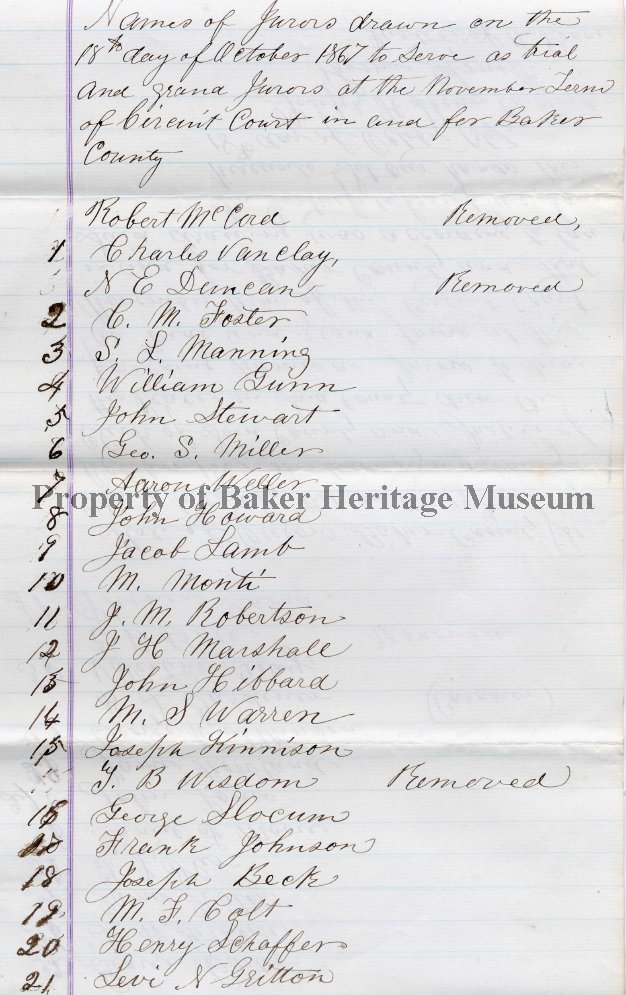 Names of Jurors drawn on the
18th day of October 1867 to Serve as trial
and grand Jurors at the November Term
of Circuit Court in and for Baker
County
Robert McCord Removed,
1 Charles Vanclay,
N E Duncan Removed
2 C. M. Foster
3 S. L. Manning
4 William Gunn
5 John Stewart
6 Geo. S. Miller
7 Aaron Weller
Property of Baker Heritage Museum
8 John Howard
9 Jacob Lamb
10 M. Monti
11 J. M. Robertson
12 J H Marshall
13 John Hibbard
14 M. S Warren
15 Joseph Kinnison
T. B Wisdom Removed
16 George Slocum
Frank Johnson
18 Joseph Beck
19 M. F. Colt
20 Henry Schaffer
21 Levi N Gritton